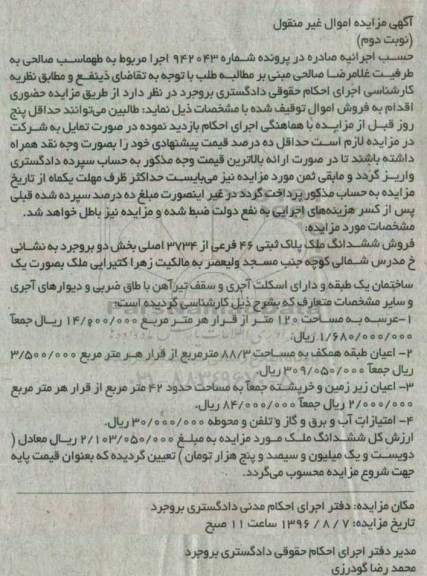 آگهی مزایده اموال غیر منقول
(نوبت دوم)
حسب اجرائیه صادره در پرونده شماره ۹۴۲۰۴۳ اجرا مربوط به طهماسب صالحی به
طرفیت غلامرضا صالحی مبنی بر مطالبه طلب با توجه به تقاضای ذینفع و مطابق نظریه
کارشناسی اجرای احکام حقوقی دادگستری بروجرد در نظر دارد از طریق مزایده حضوری
اقدام به فروش اموال توقیف شده با مشخصات ذیل نماید: طالبین می‌توانند حداقل پنج
روز قبل از مزایده با هماهنگی اجرای احکام بازدید نموده در صورت تمایل به شرکت
در مزایده لازم است حداقل ده درصد قیمت پیشنهادی خود را بصورت وجه نقد همراه
داشته باشند تا در صورت ارائه بالاترین قیمت وجه مذکور به حساب سپرده دادگستری
واریز گردد و مابقی ثمن مورد مزایده نیز می‌بایست حداکثر ظرف مهلت یکماه از تاریخ
مزایده به حساب مذکور پرداخت گردد در غیر اینصورت مبلغ ده درصد سپرده شده قبلی
پس از کسر هزینه‌های اجرایی به نفع دولت ضبط شده و مزایده نیز باطل خواهد شد.
مشخصات مورد مزایده:
فروش ششدانگ ملک پلاک ثبتی ۴۶ فرعی از ۳۷۳۴ اصلی بخش دو بروجرد به نشانی
خ مدرس شمالی کوچه جنب مسجد ولیعصر به مالکیت زهرا کثیرایی ملک بصورت یک
ساختمان یک طبقه و دارای اسکلت آجری و سقف تیرآهن با طاق ضربی و دیوارهای آجری
و سایر مشخصات متعارف که بشرح ذیل کارشناسی گردیده است:
۱-عرسه به مساحت ۱۲۰ متر از قرار هر متر مربع ۱۴/۰۰۰/۰۰۰ ریال جمعاً
۱/۶۸۰/۰۰۰/۰۰۰ ریال.
۲- اعیان طبقه همکف به مساحت ۸۸/۳ مترمربع از قرار هر متر مربع ۳/۵۰۰/۰۰۰
ریال جمعاً ۳۰۹/۰۵۰/۰۰۰ ریال.
۳- اعیان زیر زمین و خرپشته جمعاً به مساحت حدود ۴۲ متر مربع از قرار هر متر مربع
۲/۰۰۰/۰۰۰ ریال جمعاً ۸۴/۰۰۰/۰۰۰ ریال.
۴- امتیازات آب و برق و گاز و تلفن و محوطه ۳۰/۰۰۰/۰۰۰ ریال.
ارزش کل ششدانگ ملک مورد مزایده به مبلغ ۲/۱۰۳/۰۵۰/۰۰۰ ریال معادل (
دویست و یک میلیون و سیصد و پنج هزار تومان) تعیین گردیده که بعنوان قیمت پایه
جهت شروع مزایده محسوب می‌گردد.
مکان مزایده: دفتر اجرای احکام مدنی دادگستری بروجرد
تاریخ مزایده: ۷ / ۸ / ۱۳۹۶ ساعت ۱۱ صبح
مدیر دفتر اجرای احکام حقوقی دادگستری بروجرد
محمد رضا گودرزی